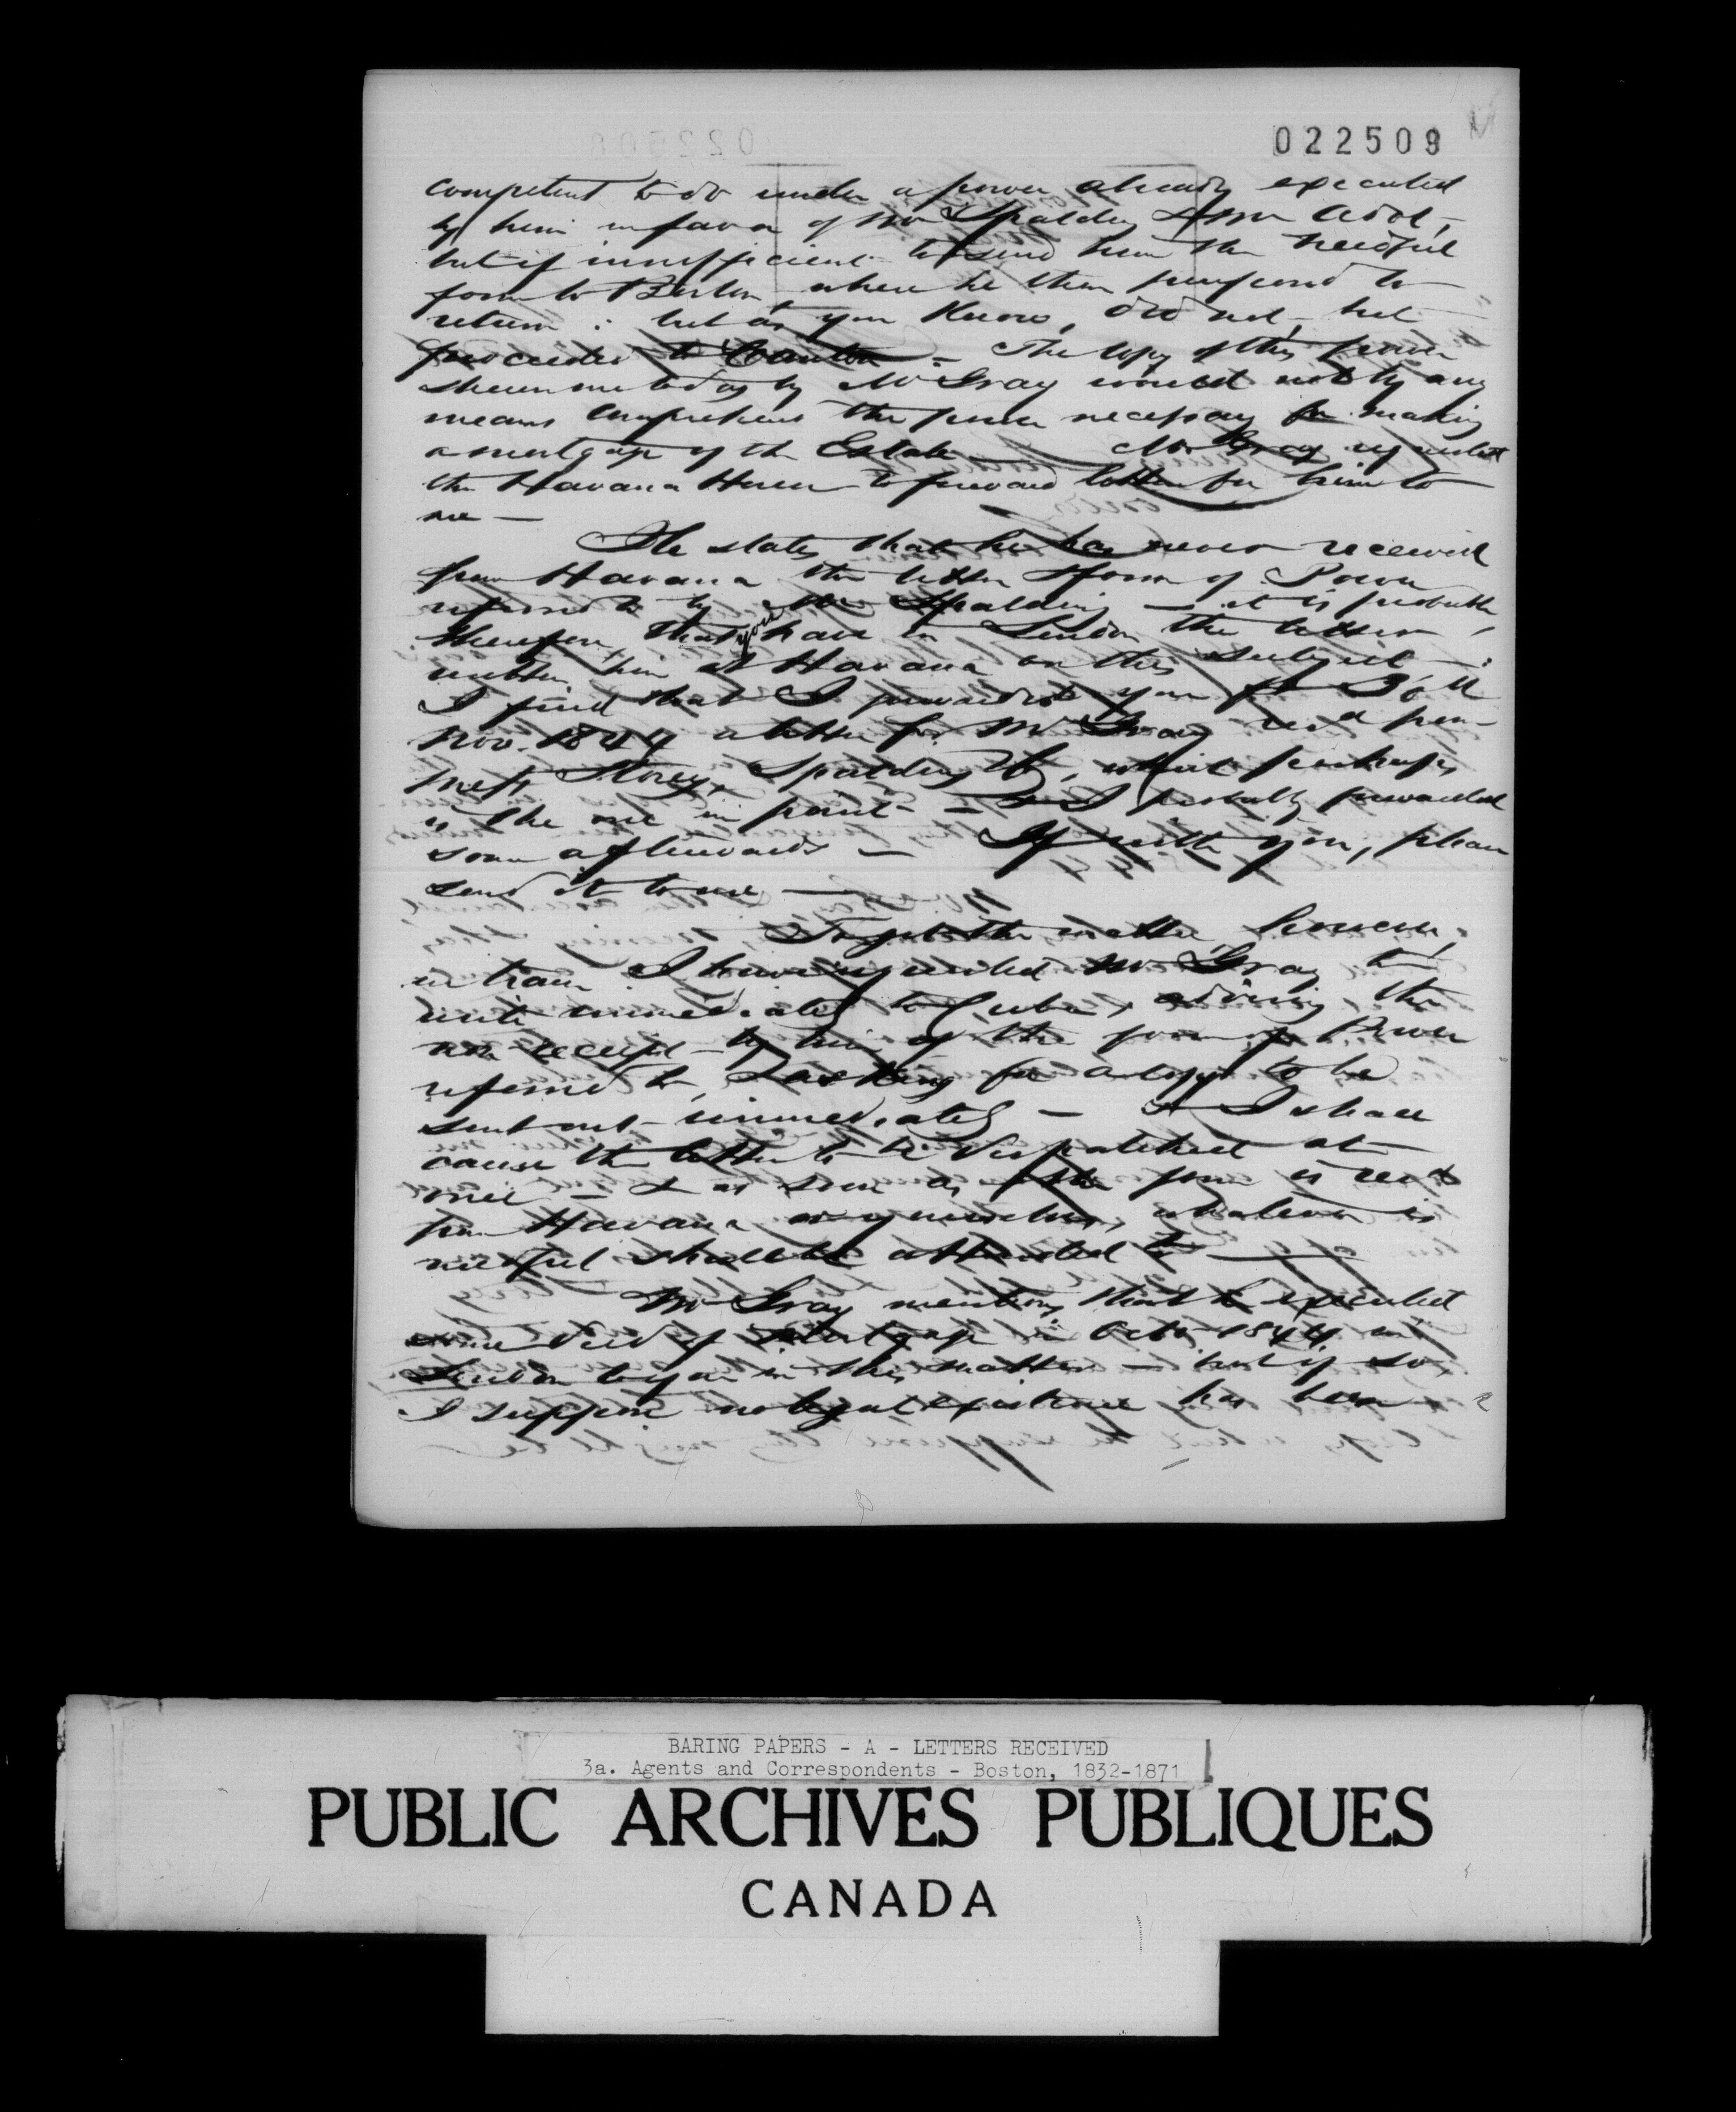 022509
competent to do under a power already executed
by him in favor of Mr Spalding & Mr
but if insufficient to send him the needful
form to Boston where he then purposed to
return : but as you know, did not, but
proceeded to - The copy of this power
shewn me today by Mr Gray would not by any
means comprehend the power necessary for making
a mortgage of the Estate - Mr Gray requested
the Havana House to forward letters for him to
me -
He states that he has never received
from Havana the letter & form of Power
referred to by Mr Spalding - it is probable
therefore, that you have in London the letter
written him at Havana on this subject - :
I find that I forwarded you
Nov. 1844 a letter for Mr Gray recd from
Messrs Storey, Spalding & Co, which perhaps
is the one in point - & I probably forwarded
soon afterwards - If with you, please
send it to me -
To put the matter, however,
in train I have requested Mr Gray to
write immediately to Cuba, advising the
non receipt by him of the form of Power
referred to, & asking for a copy to be
sent out immediately - & I shall
cause the letter to be despatched at
once - & as soon as the form is recd
from Havana or yourselves, whatever is
needful shall be attended to -
Mr Gray mentions that he executed
some Deed of Mortgage in Octo 1844 in
London to you in this matter - but if so,
I suppose no legal existence has been
BARING PAPERS - A - LETTERS RECEIVED
3a. Agents and Correspondents - Boston, 1832-1871
PUBLIC ARCHIVES PUBLIQUES
CANADA